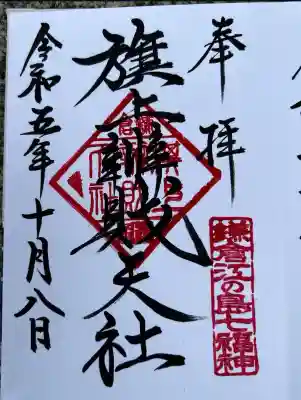 奉拝
旗上辨財天社
鎌倉江の島七福神
令和五年十月八日